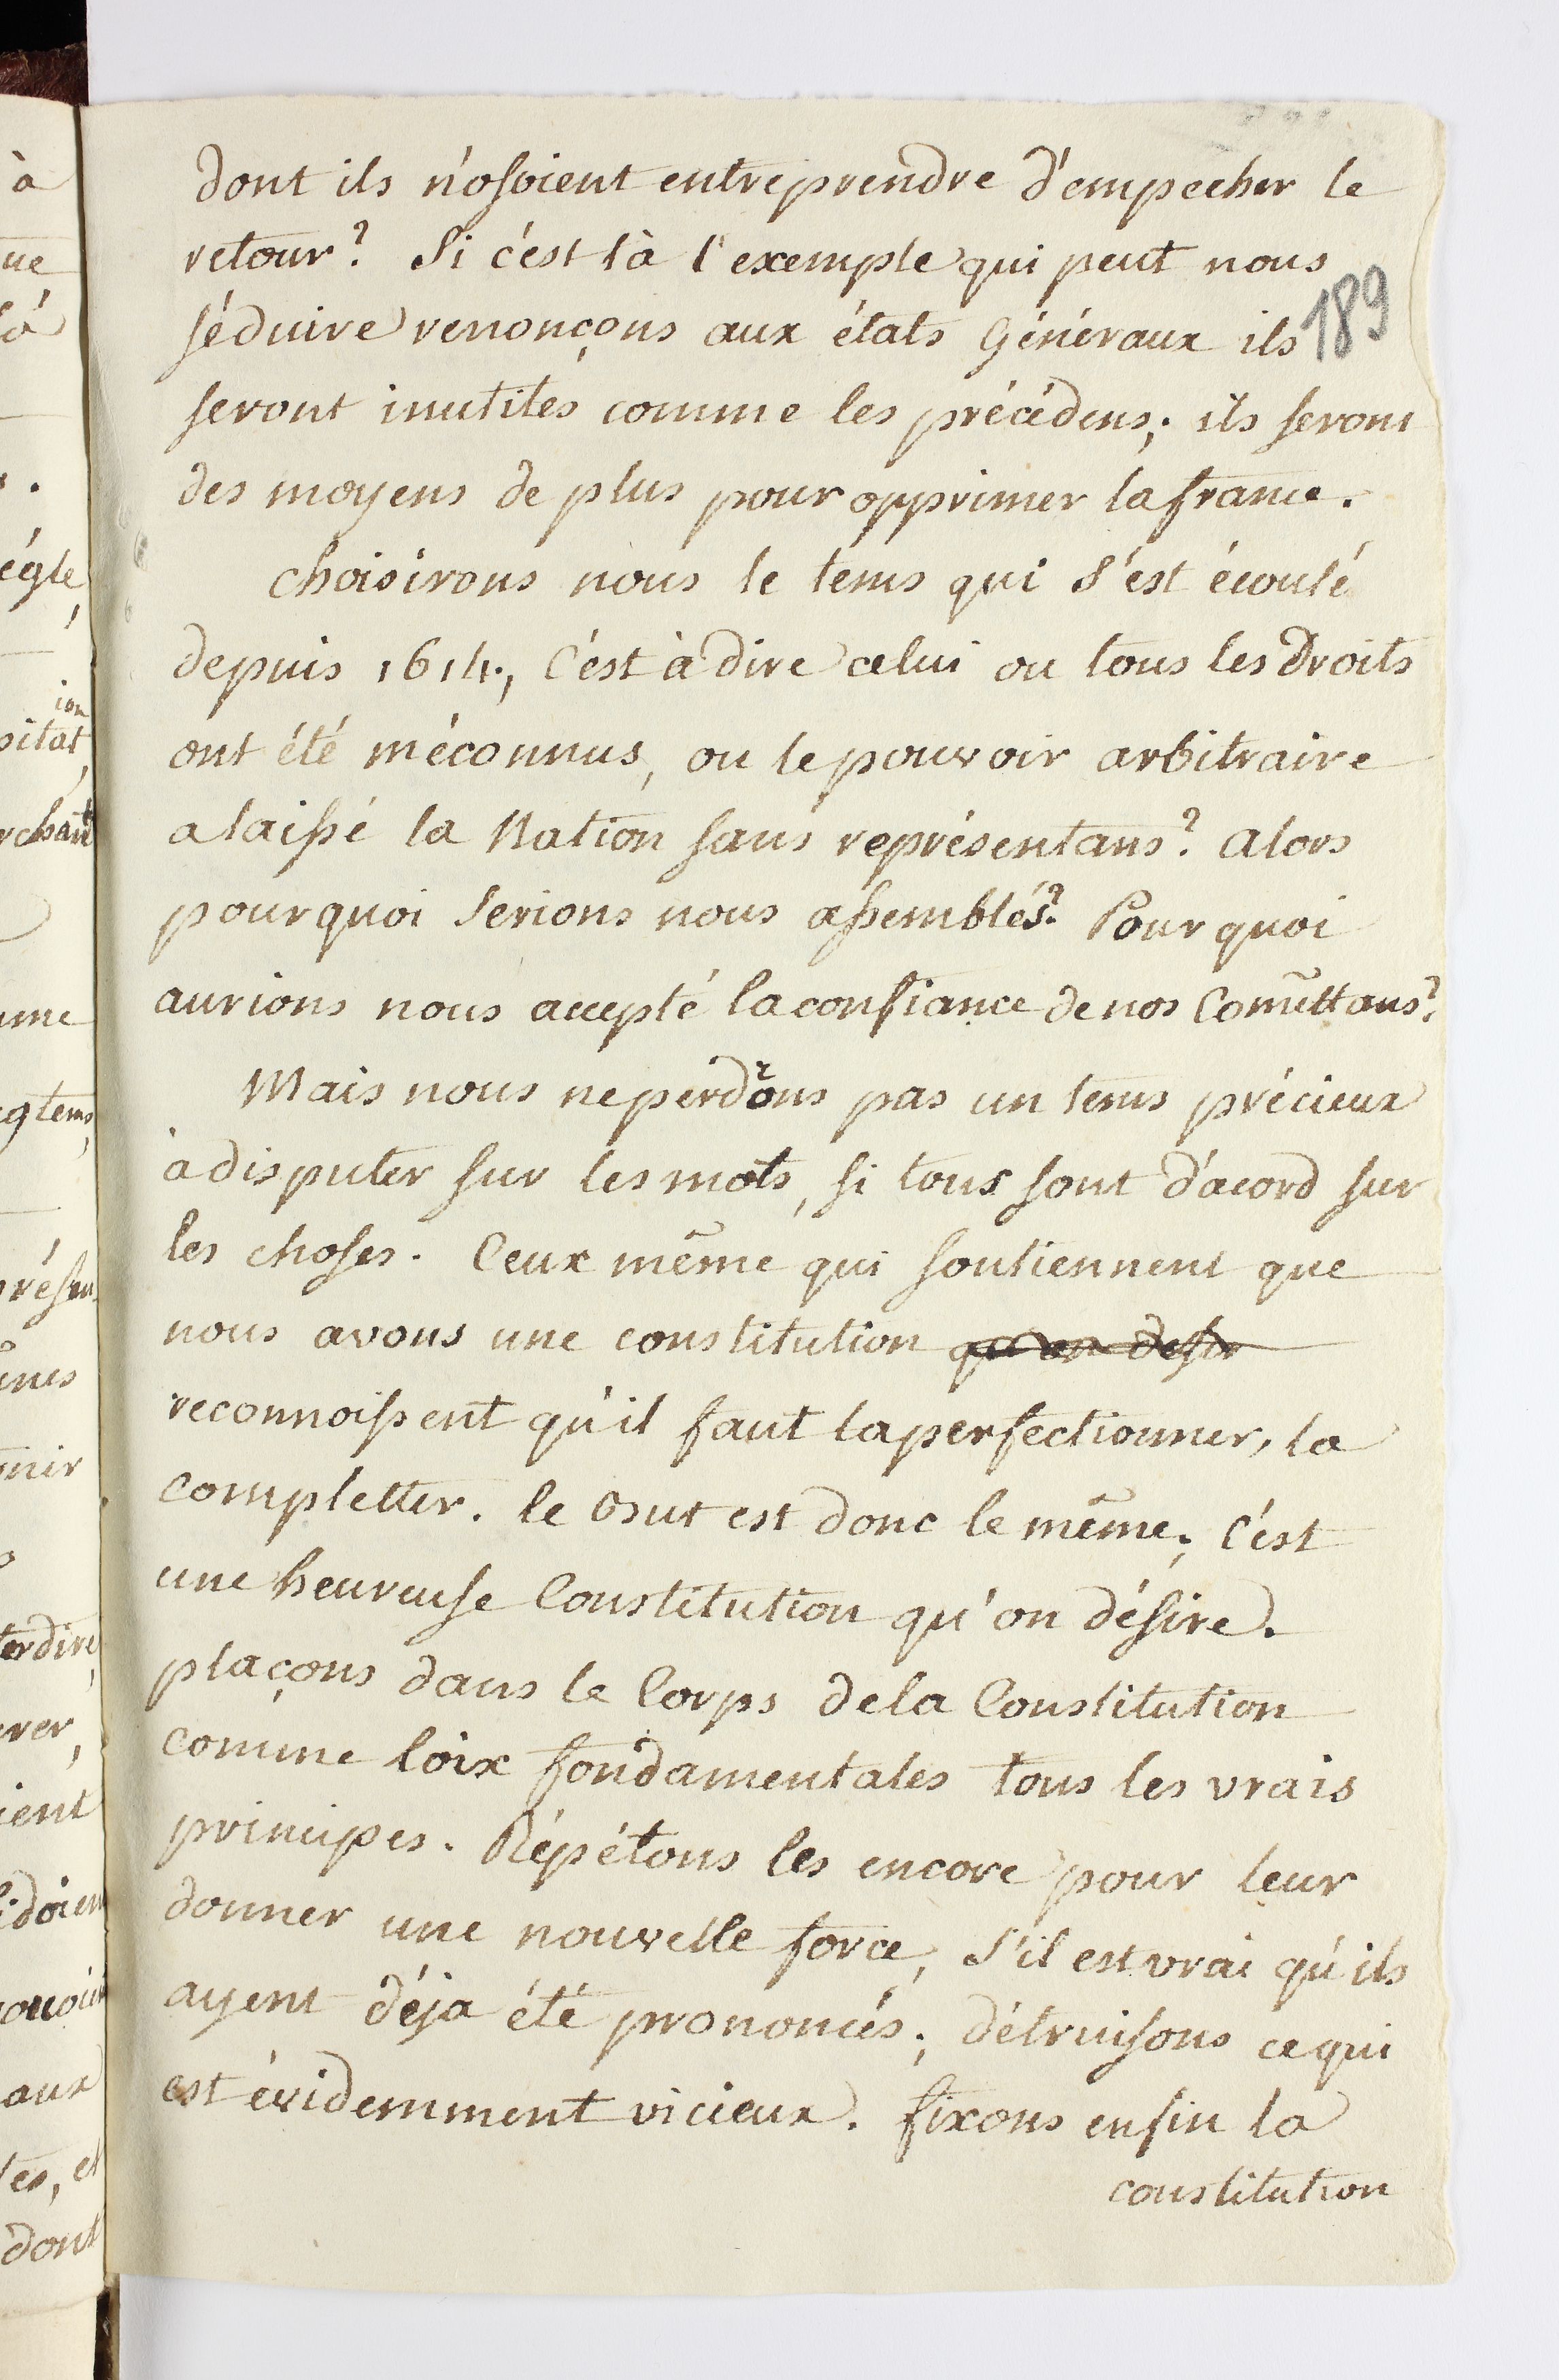 dont ils n'osoient entreprendre d'empecher le
retour? Si c'est là l'exemple qui peut nous
séduire renonçons aux états Généraux ils
189
seront inutiles comme les précédens; ils seront
des moyens de plus pour opprimer la france.
choisirons nous le tems qui s'est écoulé
depuis 1614, C'est à dire celui ou tous les Droits
ont été méconnus, ou le pouvoir arbitraire
a laissé la Nation sans représentans? Alors
pourquoi Serions nous assemblés? Pourquoi
aurions nous accepté la confiance de nos Com̃ettans?
Mais nous ne perdons pas un tems précieux
à disputer sur les mots, si tous sont d'acord sur
les choses. Ceux même qui soutiennent que
nous avons une constitution
reconnoissent qu'il faut la perfectionner, la
completter. le But est donc le même; C'est
une heureuse Constitution qu'on désire.
plaçons dans le Corps de la Constitution
comme loix fondamentales tous les vrais
principes. Répétons les encore pour leur
donner une nouvelle force, S'il est vrai qu'ils
ayent déja été prononcés; détruisons ce qui
est évidemment vicieux. fixons enfin la
constitution